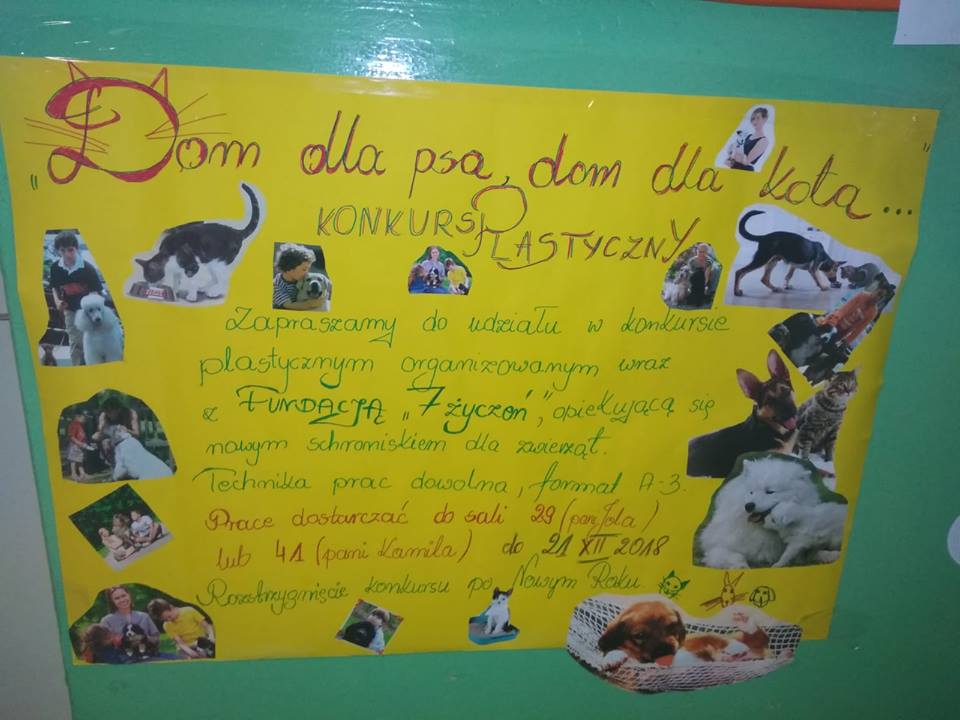 „Dom dla psa, dom dla kota..."
KONKURS PLASTYCZNY
Zapraszamy do udziału w konkursie
plastycznym organizowanym wraz
z FUNDACJĄ „7 życzeń", opiekującą się
nowym schroniskiem dla zwierząt.
Technika prac dowolna, format A-3.
Prace dostarczać do sali 29 (pani Jola)
lub 41 (pani Kamila) do 21 XII 2018
Rozstrzygnięcie konkursu po Nowym Roku